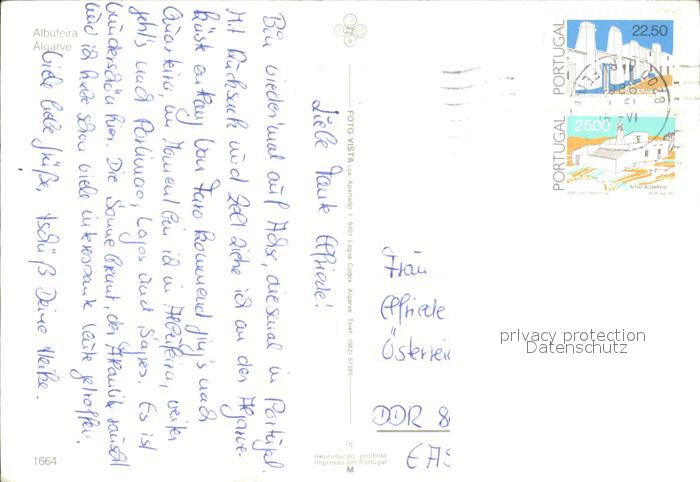 Albufeira
Algarve
Liebe Tante Elfriede!
Bin wieder mal auf Achse, diesmal in Portugal.
Mit Rucksack und Zelt ziehe ich an der Algarve-
küste entlang. Von Faro kommend ging's nach
Quarteira, im Moment bin ich in Albufeira, weiter
geht's nach Portimao, Lagos und Sagres. Es ist
wunderschön hier. Die Sonne brennt, der Atlantik rauscht
und ich habe schon viele interessante Leute getroffen.
Viele liebe Grüße, tschüß Deine Heike.
1664
FOTO VISTA Lda. Apartado 1 8401 Lagoa Codex Algarve Telef. (082) 57385
Reprodução proibida
Impresso em Portugal
M
PORTUGAL
22.50
PORTUGAL
25.00
SÍTIO ALGARVIO
Frau
Elfriede
Österrei
DDR 8
EAS
privacy protection
Datenschutz